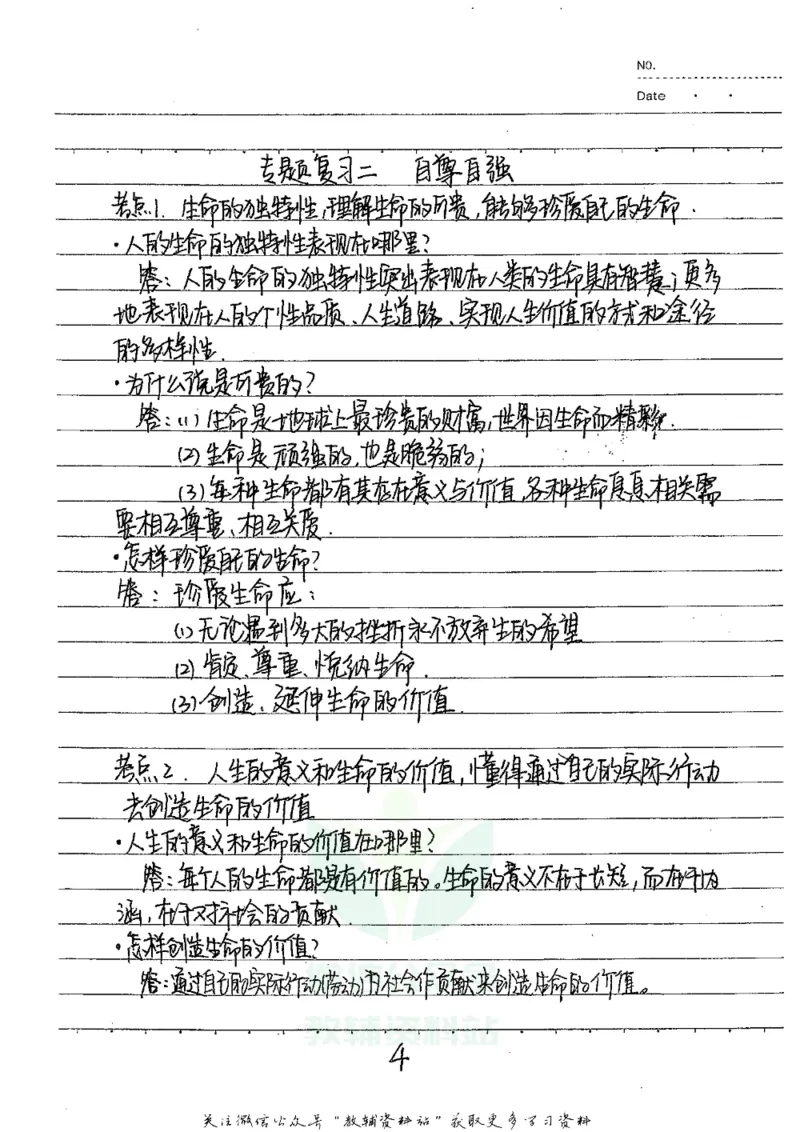 NO.
Date
专题复习二 自尊自强
考点1. 生命的独特性,理解生命的可贵,能够珍爱自己的生命.
·人的生命的独特性表现在哪里?
答:人的生命的独特性突出表现在人类的生命具有智慧;更多
地表现在人的个性品质、人生道路、实现人生价值的方式和途径
的多样性.
·为什么说是可贵的?
答:(1)生命是地球上最珍贵的财富,世界因生命而精彩.
(2)生命是顽强的,也是脆弱的;
(3)每种生命都有其存在意义与价值,各种生命息息相关需
要相互尊重、相互关爱.
·怎样珍爱自己的生命?
答:珍爱生命应:
(1)无论遇到多大的挫折永不放弃生的希望
(2)肯定、尊重、悦纳生命.
(3)创造、延伸生命的价值.
考点2. 人生的意义和生命的价值,懂得通过自己的实际行动
去创造生命的价值
·人生的意义和生命的价值在哪里?
答:每个人的生命都是有价值的。生命的意义不在于长短,而在于内
涵,在于对社会的贡献.
·怎样创造生命的价值?
答:通过自己的实际行动(劳动)为社会作贡献来创造生命的价值。
教辅资料站
4
关注微信公众号"教辅资料站"获取更多学习资料